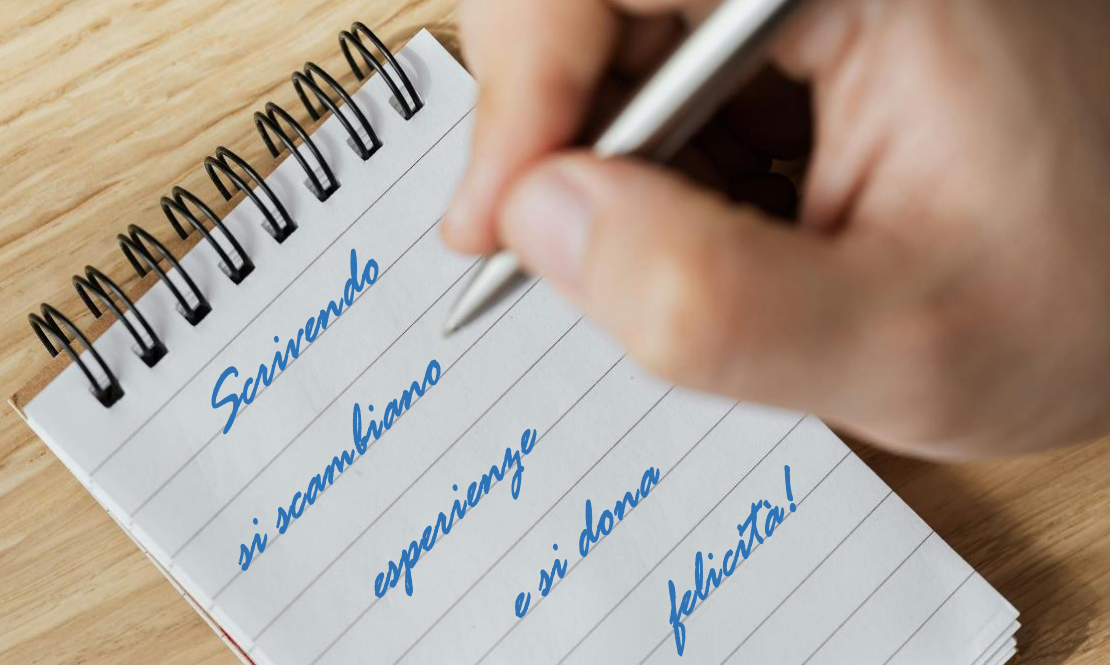 Scrivendo
si scambiano
esperienze
e si dona
felicità!